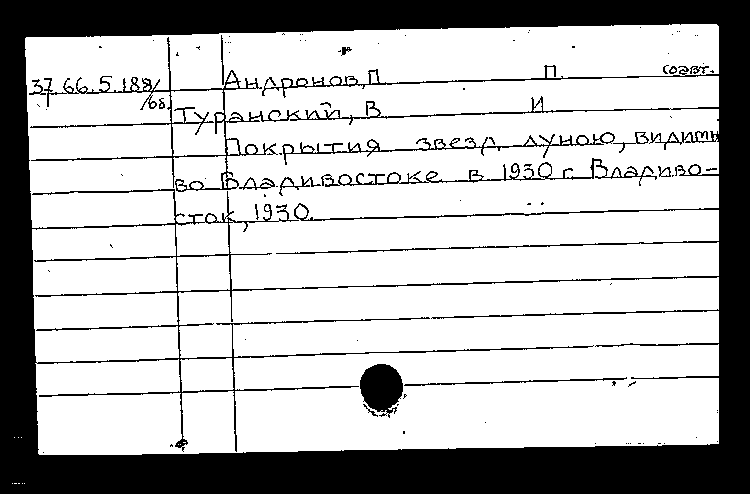 37.66.5.188/68. Андронов, П П соавт.
Туранский, В И
Покрытия звезд луною, видимы
во Владивостоке в 1930 г. Владиво-
сток, 1930.